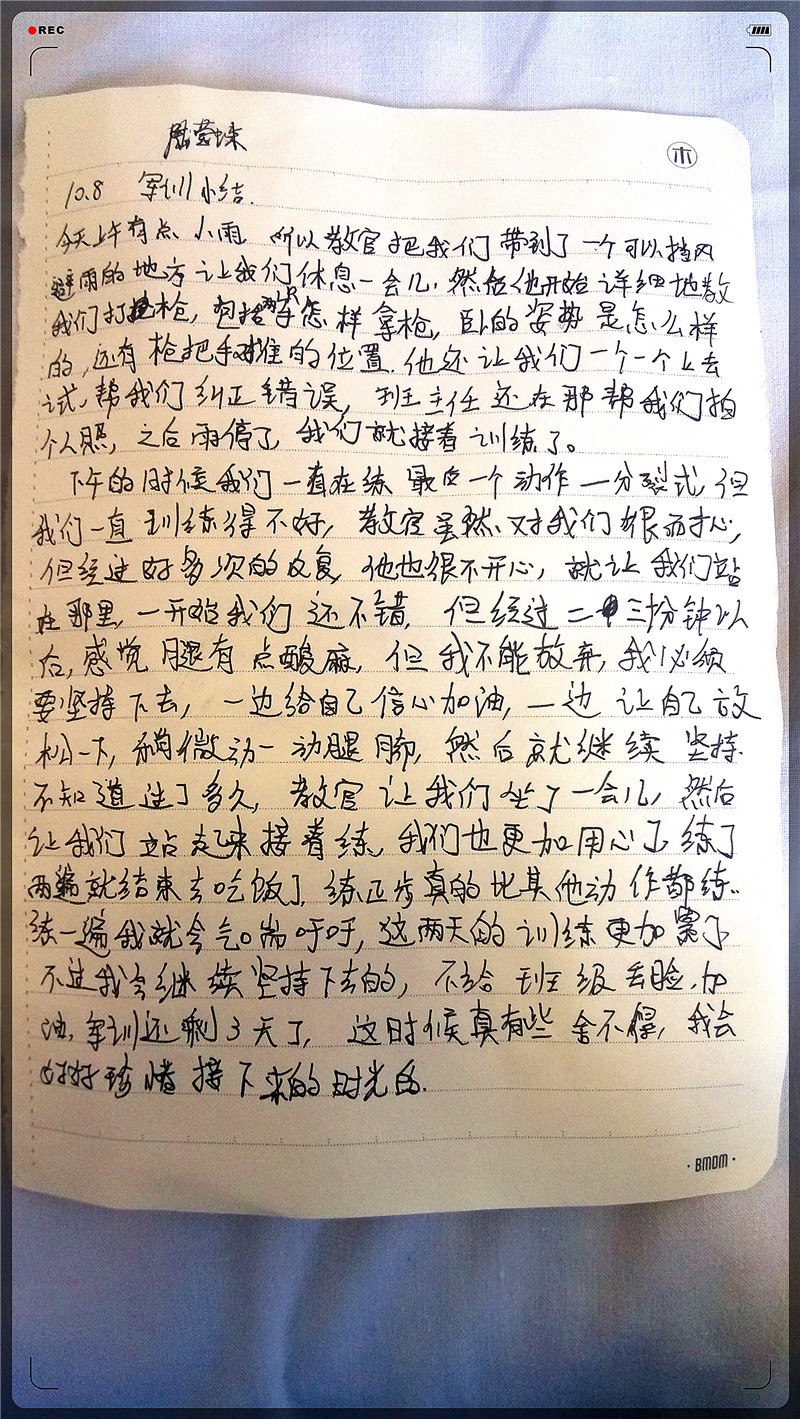 REC
木
10.8 军训小结.
今天上午有点小雨 所以教官把我们带到了一个可以挡风
避雨的地方让我们休息一会儿.然后他开始详细地教
我们打枪,包括两只手怎样拿枪,卧的姿势是怎么样
的,还有枪把手对准的位置.他还让我们一个一个上去
试,帮我们纠正错误,班主任还在那帮我们拍
个人照,之后雨停了,我们就接着训练了。
下午的时候我们一直在练最后一个动作—分裂式,但
我们一直训练得不好,教官虽然对我们很耐心,
但经过好多次的反复,他也很不开心,就让我们站
在那里,一开始我们还不错,但经过二三十分钟以
后,感觉腿有点酸麻,但我不能放弃,我必须
要坚持下去,一边给自己信心加油,一边让自己放
松一下,稍微动一动腿脚,然后就继续坚持.
不知道过了多久,教官让我们坐了一会儿,然后
让我们站起来接着练,我们也更加用心了,练了
两遍就结束去吃饭了.练正步真的比其他动作都练..
练一遍我就会气喘吁吁,这两天的训练更加累了
不过我会继续坚持下去的,不给班级丢脸.加
油,军训还剩3天了,这时候真有些舍不得,我会
好好珍惜接下来的时光的.
·BMDM·